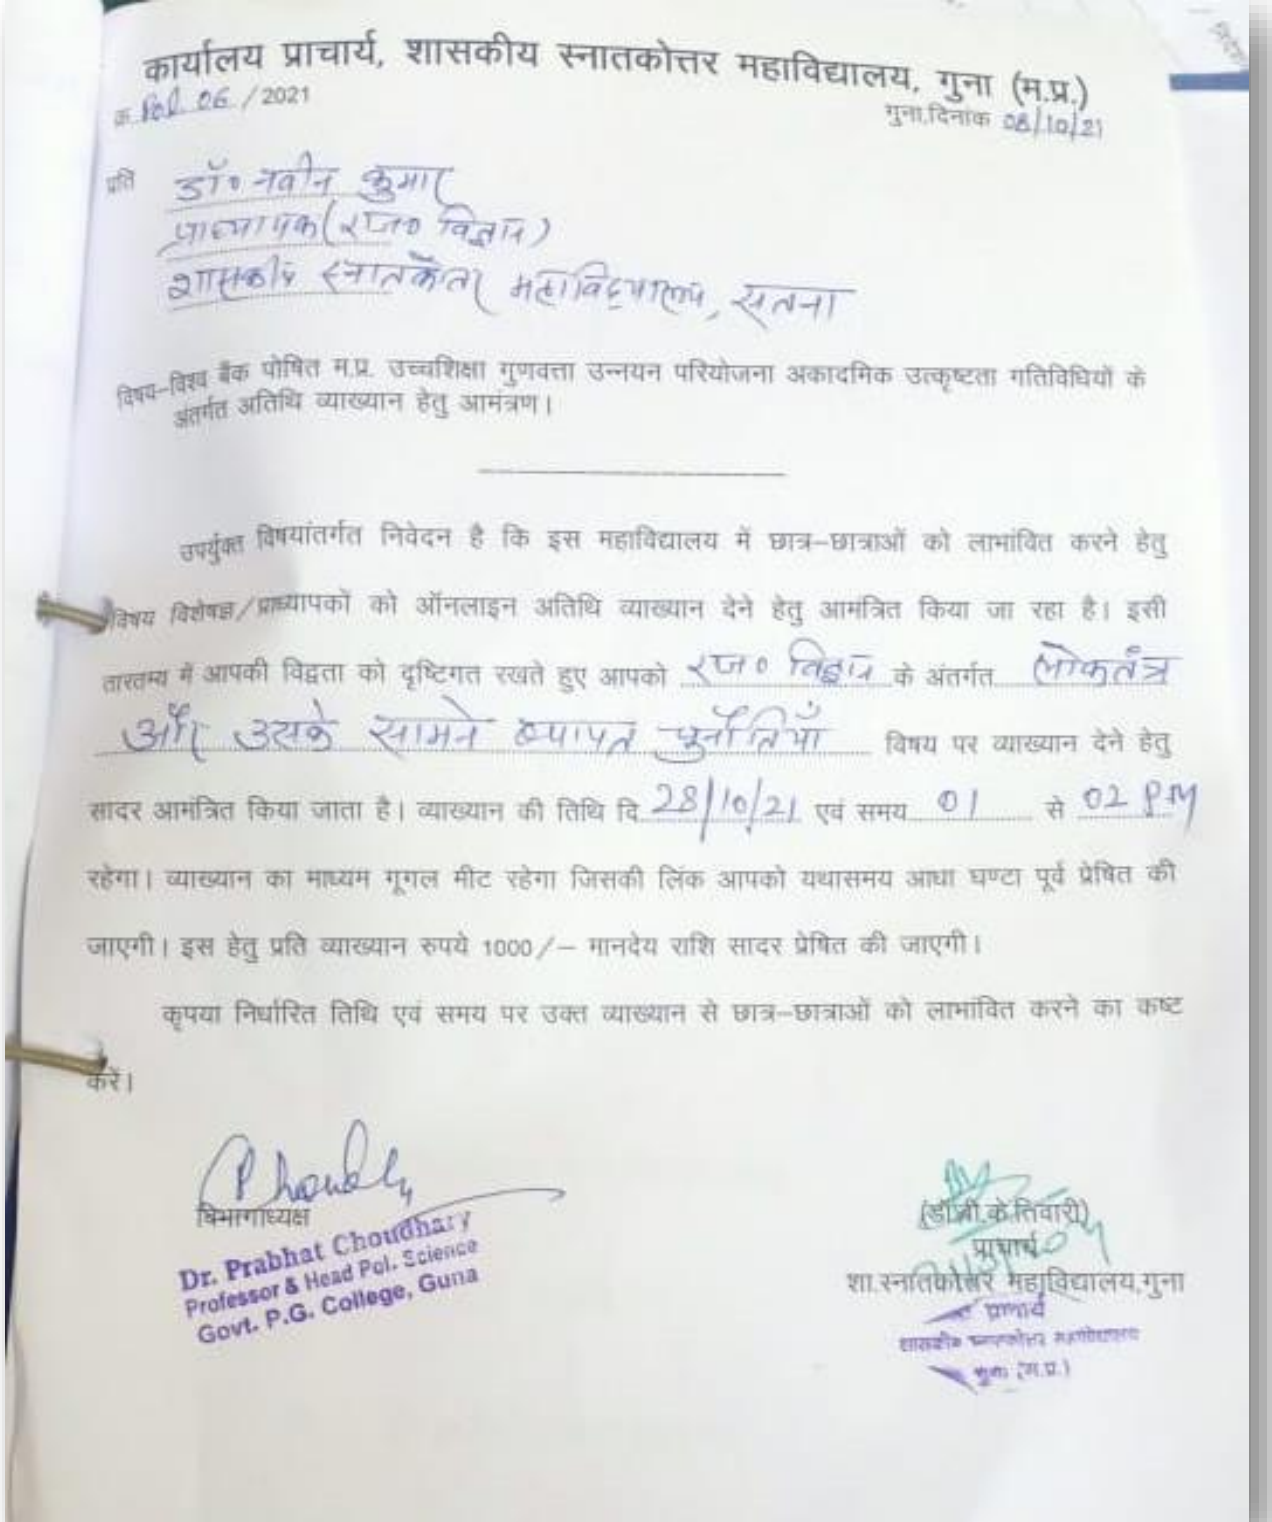 कार्यालय प्राचार्य, शासकीय स्नातकोत्तर महाविद्यालय, गुना (म.प्र.)
क Pol. 06 /2021
गुना,दिनांक 08/10/21
प्रति
डॉ० नवीन कुमार
प्राध्यापक (राज० विज्ञान)
शासकीय स्नातकोत्तर महाविद्यालय, सतना
विषय–विश्व बैंक पोषित म.प्र. उच्चशिक्षा गुणवत्ता उन्नयन परियोजना अकादमिक उत्कृष्टता गतिविधियों के
अंतर्गत अतिथि व्याख्यान हेतु आमंत्रण।
उपर्युक्त विषयांतर्गत निवेदन है कि इस महाविद्यालय में छात्र–छात्राओं को लाभांवित करने हेतु
विषय विशेषज्ञ/प्राध्यापकों को ऑनलाइन अतिथि व्याख्यान देने हेतु आमंत्रित किया जा रहा है। इसी
तारतम्य में आपकी विद्वता को दृष्टिगत रखते हुए आपको राज० विज्ञान के अंतर्गत लोकतंत्र
और उसके सामने व्यापत चुनौतियाँ विषय पर व्याख्यान देने हेतु
सादर आमंत्रित किया जाता है। व्याख्यान की तिथि दि 28/10/21 एवं समय 01 से 02 PM
रहेगा। व्याख्यान का माध्यम गूगल मीट रहेगा जिसकी लिंक आपको यथासमय आधा घण्टा पूर्व प्रेषित की
जाएगी। इस हेतु प्रति व्याख्यान रुपये 1000/– मानदेय राशि सादर प्रेषित की जाएगी।
कृपया निर्धारित तिथि एवं समय पर उक्त व्याख्यान से छात्र–छात्राओं को लाभांवित करने का कष्ट
करें।
विभागाध्यक्ष
Dr. Prabhat Choudhary
Professor & Head Pol. Science
Govt. P.G. College, Guna
(डॉ.बी.के.तिवारी)
प्राचार्य
शा.स्नातकोत्तर महाविद्यालय,गुना
प्राचार्य
शासकीय स्नातकोत्तर महाविद्यालय
गुना (म.प्र.)